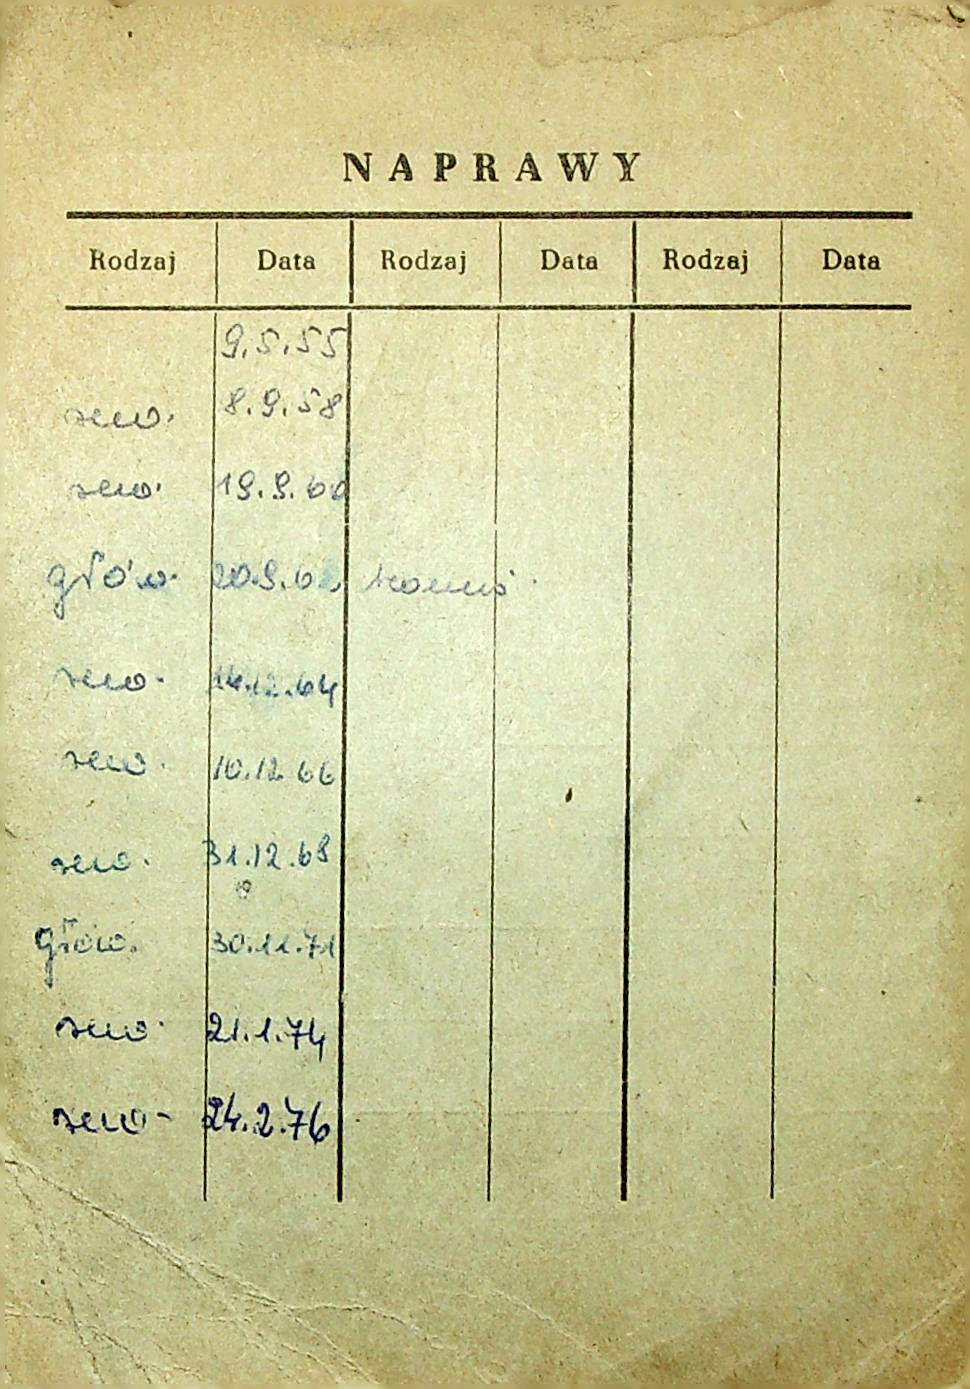 NAPRAWY
Rodzaj Data Rodzaj Data Rodzaj Data
9.5.55
rew. 8.9.58
rew. 19.9.60
głów. 20.9.62
rew. 14.12.64
rew. 10.12.66
rew. 31.12.68
głów. 30.11.71
rew. 21.1.74
rew- 24.2.76